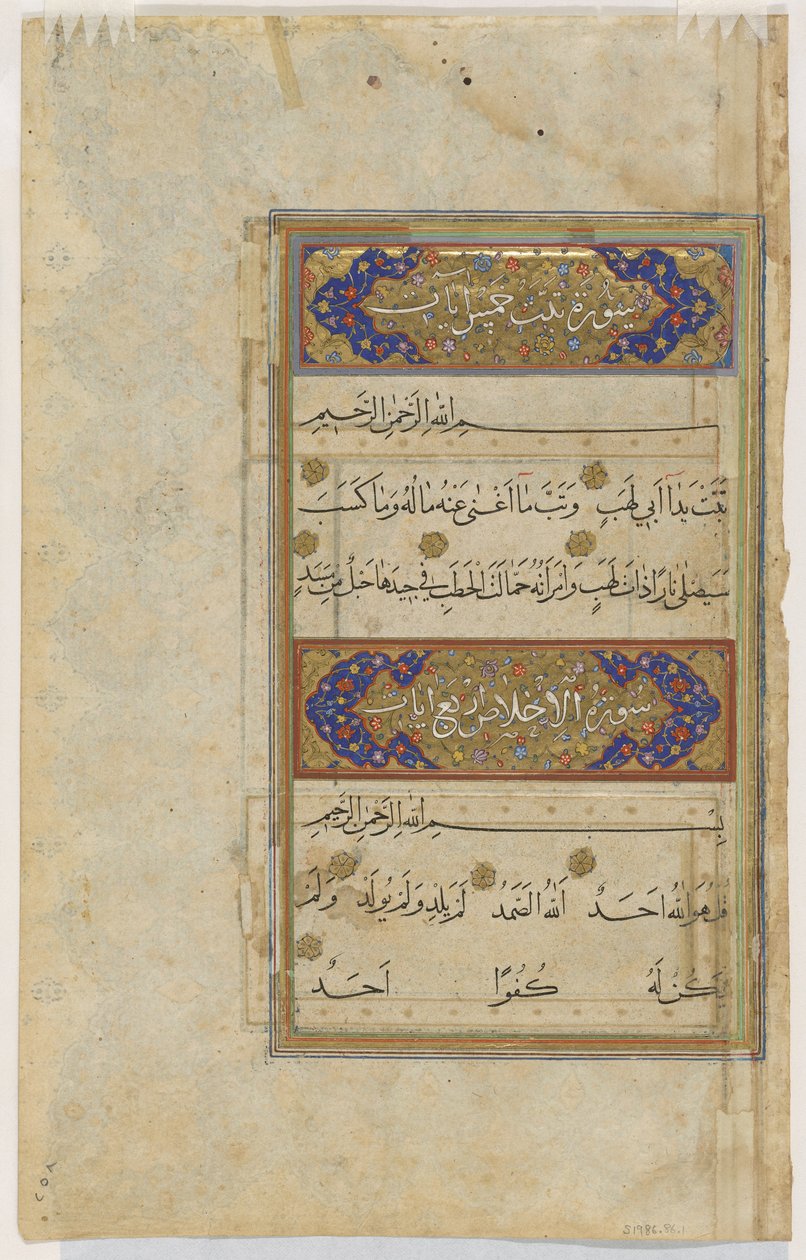 سورة تبت خمس آيات
بسم الله الرحمن الرحيم
تَبَّتْ يَدَآ اَبِي لَهَبٍ وَتَبَّ مَآ اَغْنٰى عَنْهُ مَالُهُ وَمَا كَسَبَ
سَيَصْلٰى نَارًا ذَاتَ لَهَبٍ وَامْرَاَتُهُ حَمَّالَةَ الْحَطَبِ فِي جِيدِهَا حَبْلٌ مِنْ مَسَدٍ
سورة الاخلاص اربع ايات
بِسْمِ اللهِ الرَّحْمٰنِ الرَّحِيمِ
قُلْ هُوَ اللهُ اَحَدٌ اَللهُ الصَّمَدُ لَمْ يَلِدْ وَلَمْ يُولَدْ وَلَمْ
يَكُنْ لَهُ كُفُوًا اَحَدٌ
S1986.86.1